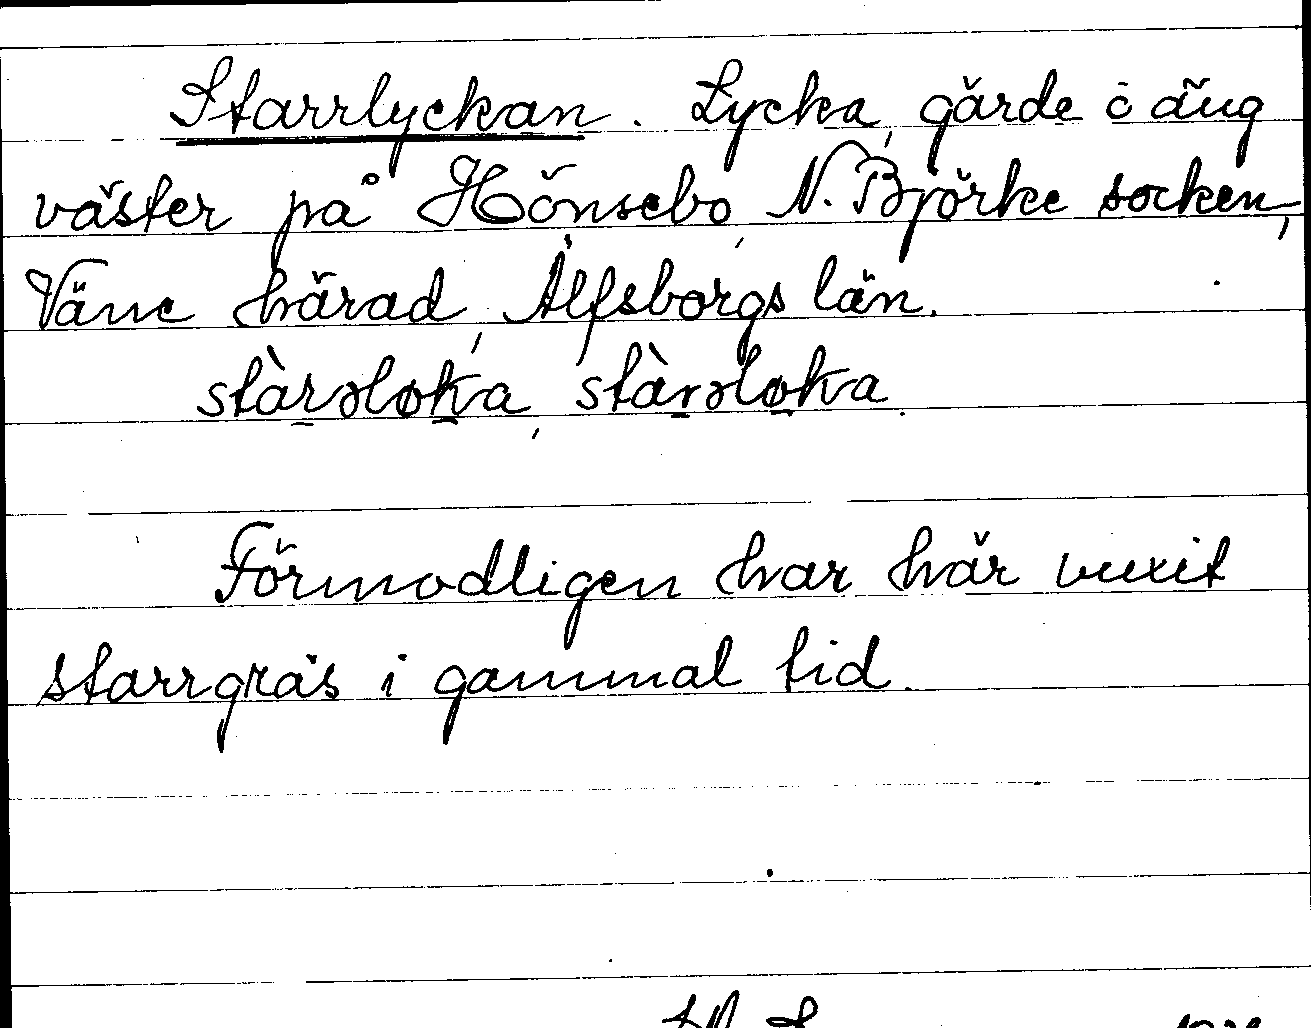 Starrlyckan. Lycka, gärde o äng
väster på Hönsebo, N. Björke socken,
Väne härad, Älfsborgs län.
stàrsløka, stàrsløka.
Förmodligen har här vuxit
starrgräs i gammal tid.